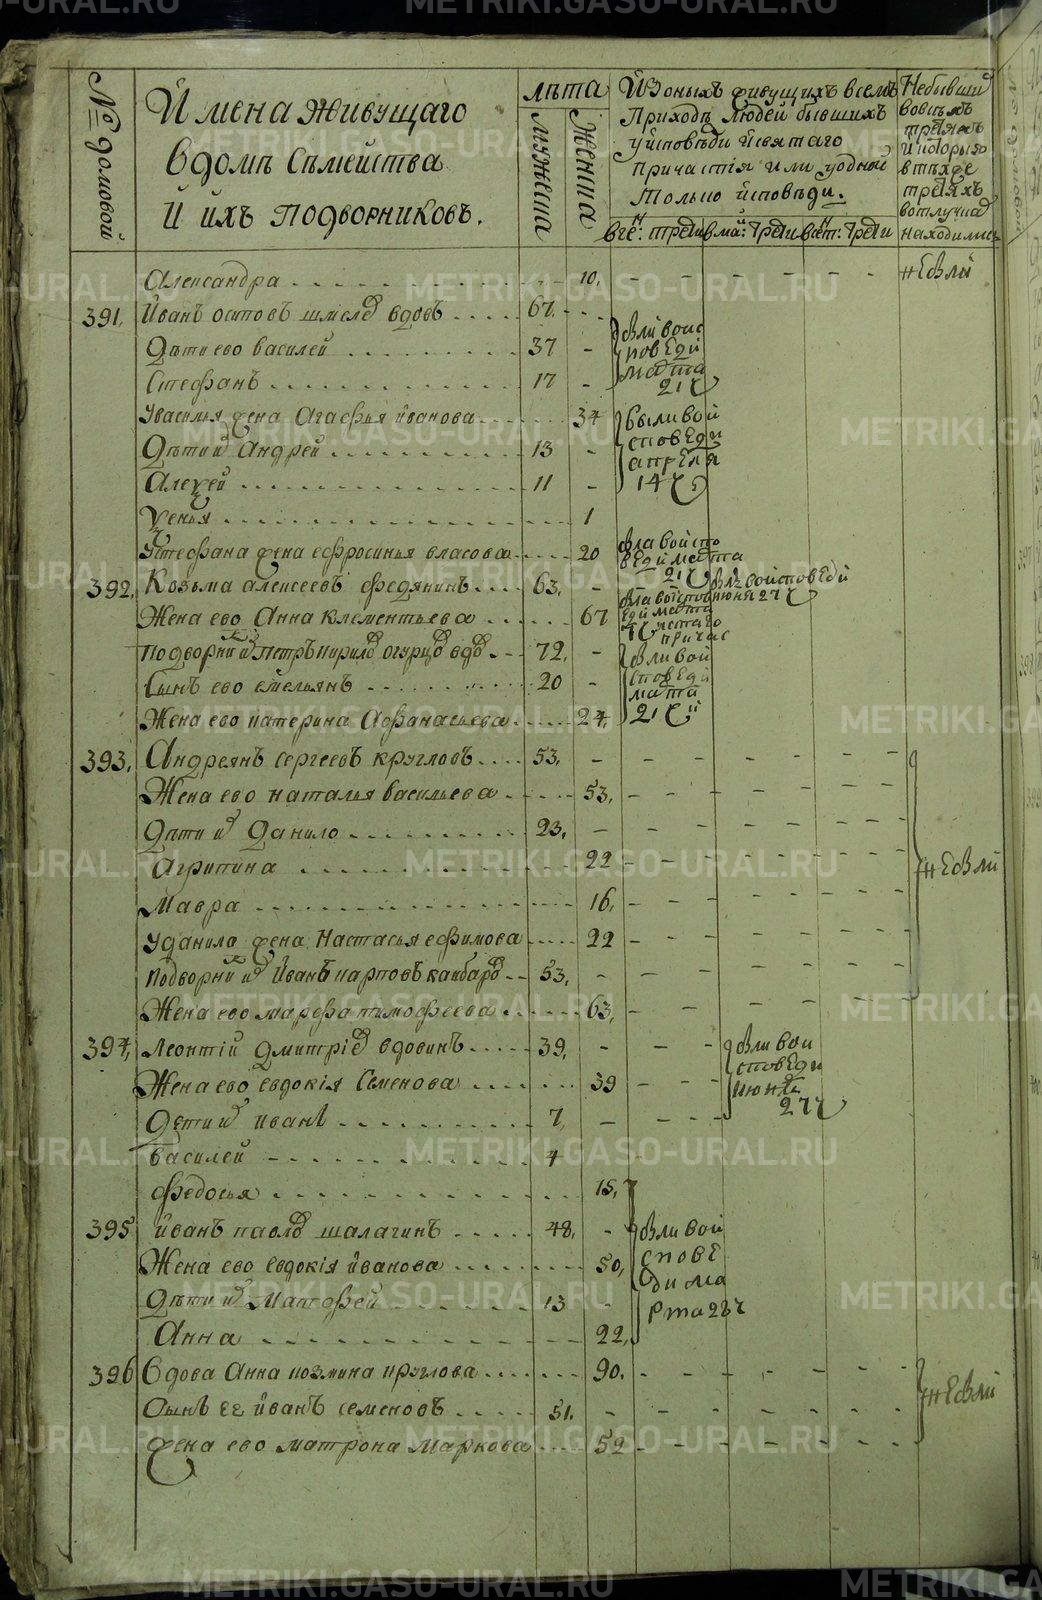 № домовой
Имена живущаго
вдомѣ Сѣмейства
И ихъ Подворниковъ.
лѣта
мужеска
женска
Изоныхъ живущихъ всемъ
Приходѣ людей бывшихъ
уисповѣди исвятаго
причастія или уодной
Только исповѣди.
вген: трети
вмаи: трети
вѣт: трети
Небывши
вовсѣхъ
третяхъ
икоторыя
втѣхже
третяхъ
вотлучке
находились
Александра 10. небыли
391. Иванъ осиповъ вдовъ 67.
Дѣти ево василей 37 были воис
поведи
марта
21
Стефанъ 17
Увасилья жена Агафья иванова 34 были вой
споведи
апреля
14
Дѣти и Андрей 13
Алекѣй 11
Уенья 1
Устефана жена ефросинья власова 20 была войспо
веди марта
21
392. Козьма алексеевъ федянинъ 63. былъ войсповеди
июня 27
Жена ево Анна клементьева 67 была войспов
еди марта
Подворники Петръ кирилов огурцов вдов 72. были вой
споведи
марта
21
Сынъ ево емельянъ 20
Жена ево катерина Афанасьева 24,
393. Андреянъ сергеевъ кругловъ 53. небыли
Жена ево наталья васильева 53.
Дѣти и Данило 23.
Агрипина 22
Мавра 16.
Уданила жена Настасья ефимова 22
Подворники Иванъ карповъ 53.
Жена ево марфа тимофеева 63,
394, Леонтій дмитріев вдовинъ 39. были вои
споведи
июня
27
Жена ево евдокія Семенова 39
Дети и иванъ 7,
василей 4
федосья 15.
395 иванъ павлов шалагинъ 48. были вой
спове
ди ма
рта 28
Жена ево евдокія иванова 50,
Дѣти и Матфей 13
Анна 22,
396 вдова Анна козмина круглова 90. небыли
Сынъ ее иванъ семеновъ 51.
жена ево матрона маркова 52
METRIKI.GASO-URAL.RU